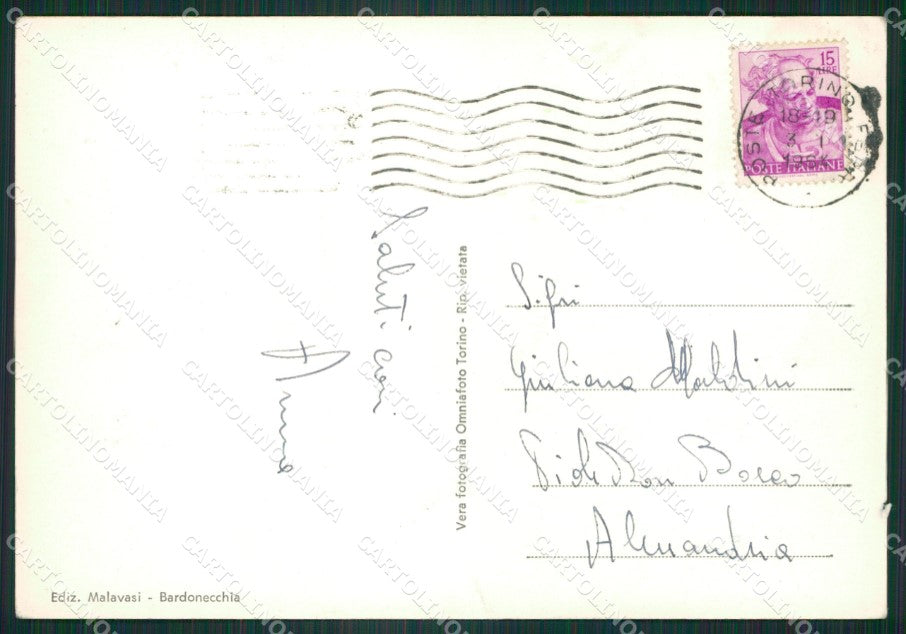 15
LIRE
POSTE TORINO FERR
18-19
3 1
1964
POSTE ITALIANE
Saluti cari
Anna
Vera fotografia Omniafoto Torino - Rip. vietata
Giuliana Maldini
Don Bosco
Alessandria
Ediz. Malavasi - Bardonecchia
CARTOLINOMANIA